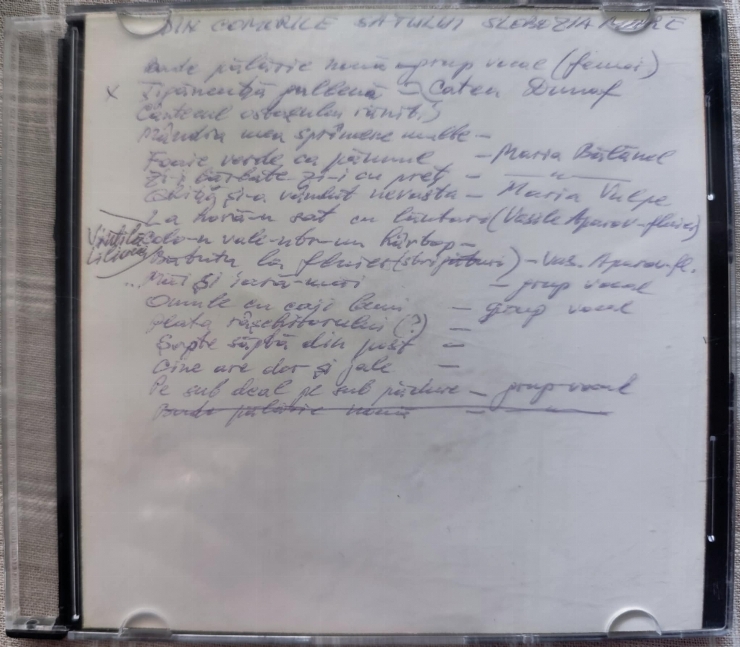 DIN COMORILE SATULUI SLOBOZIA MARE
Bade pălărie nouă - grup vocal (femei)
x Țipăneață galbenă - Catea Dunaf
Cântecul ostașului rănit
Mândra mea sprâncene multe -
Foaie verde ca pănunul - Maria Bătănel
Zi-i bărbate zi-i cu preț - —"—
Ghiță și-a vândut nevasta - Maria Vulpe
La horă-n sat cu lăutari (Vasile Aparov-fluier)
Colo-n vale-ntr-un hârtop -
Bătuta la fluier (strigături) - Vas. Aparov-fl.
Măi și iară-măi - grup vocal
Omule cu cași buni - grup vocal
(?) -
Șapte săptă din post -
Cine are dor și jale -
Pe sub deal pe sub pădure - grup vocal
Bade pălărie nouă -